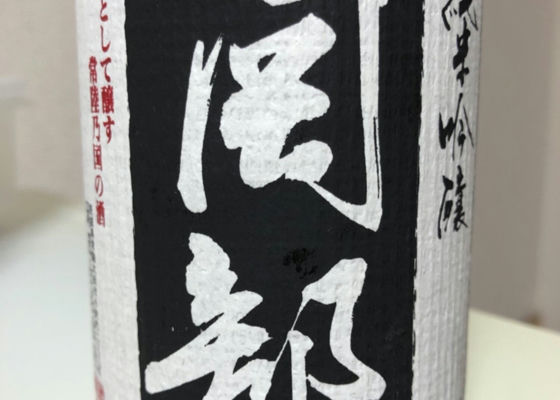 純米吟醸
岡部
として醸す
常陸乃国の酒